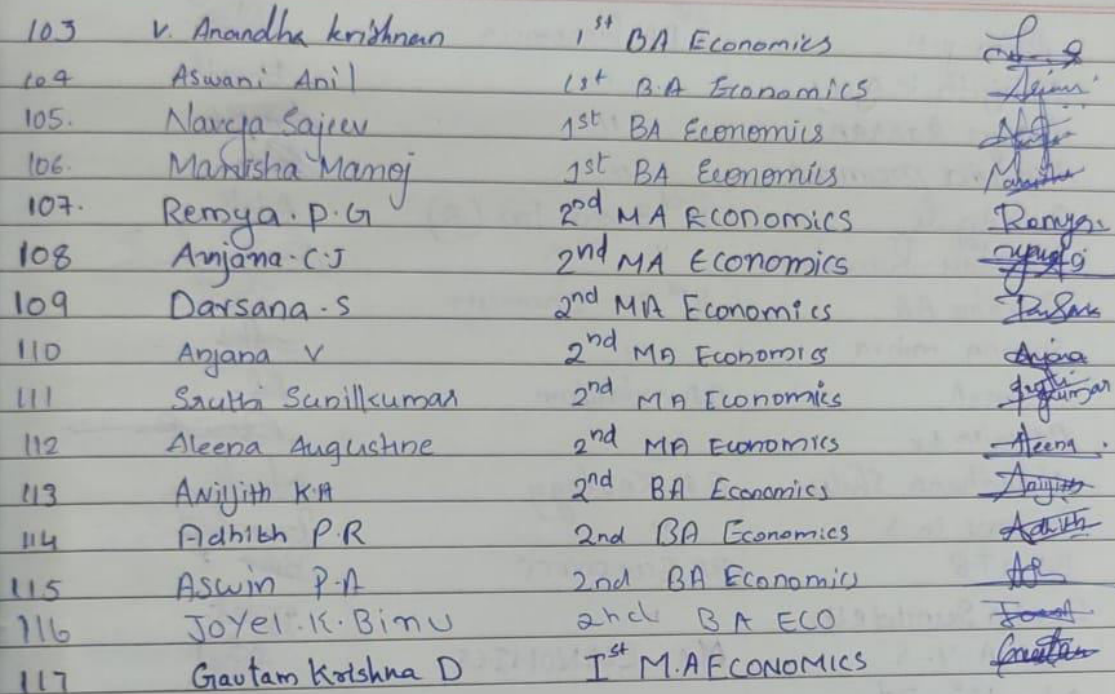 103 V. Anandha krishnan 1st BA Economics
104 Aswani Anil 1st B.A Economics
105. Navya Sajeev 1st BA Economics
106. Manisha Manoj 1st BA Economics
107. Remya. P. G 2nd MA Economics Remya
108 Anjana. C. J 2nd MA Economics
109 Darsana. S 2nd MA Economics
110 Anjana V 2nd MA Economics Anjana
111 Sruthi Sunilkumar 2nd MA Economics
112 Aleena Augustine 2nd MA Economics Aleena
113 Anijith K.A 2nd BA Economics Anijith
114 Adhith P.R 2nd BA Economics Adhith
115 Aswin P.A 2nd BA Economics
116 Joyel. K. Binu 2nd BA ECO
117 Gautam Krishna D Ist M.A ECONOMICS